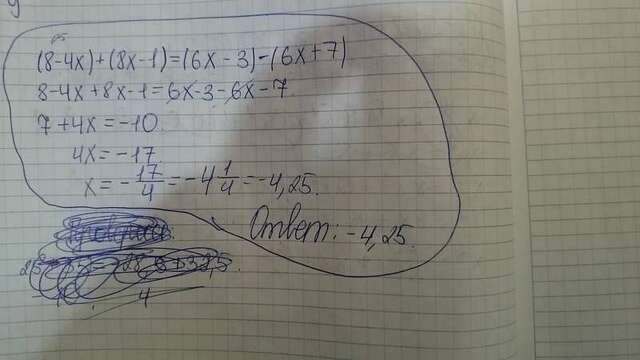 (8-4x)+(8x-1)=(6x-3)-(6x+7)
8-4x+8x-1=6x-3-6x-7
7+4x=-10
4x=-17
x=-17/4=-4 1/4=-4,25.
Ответ: -4,25.